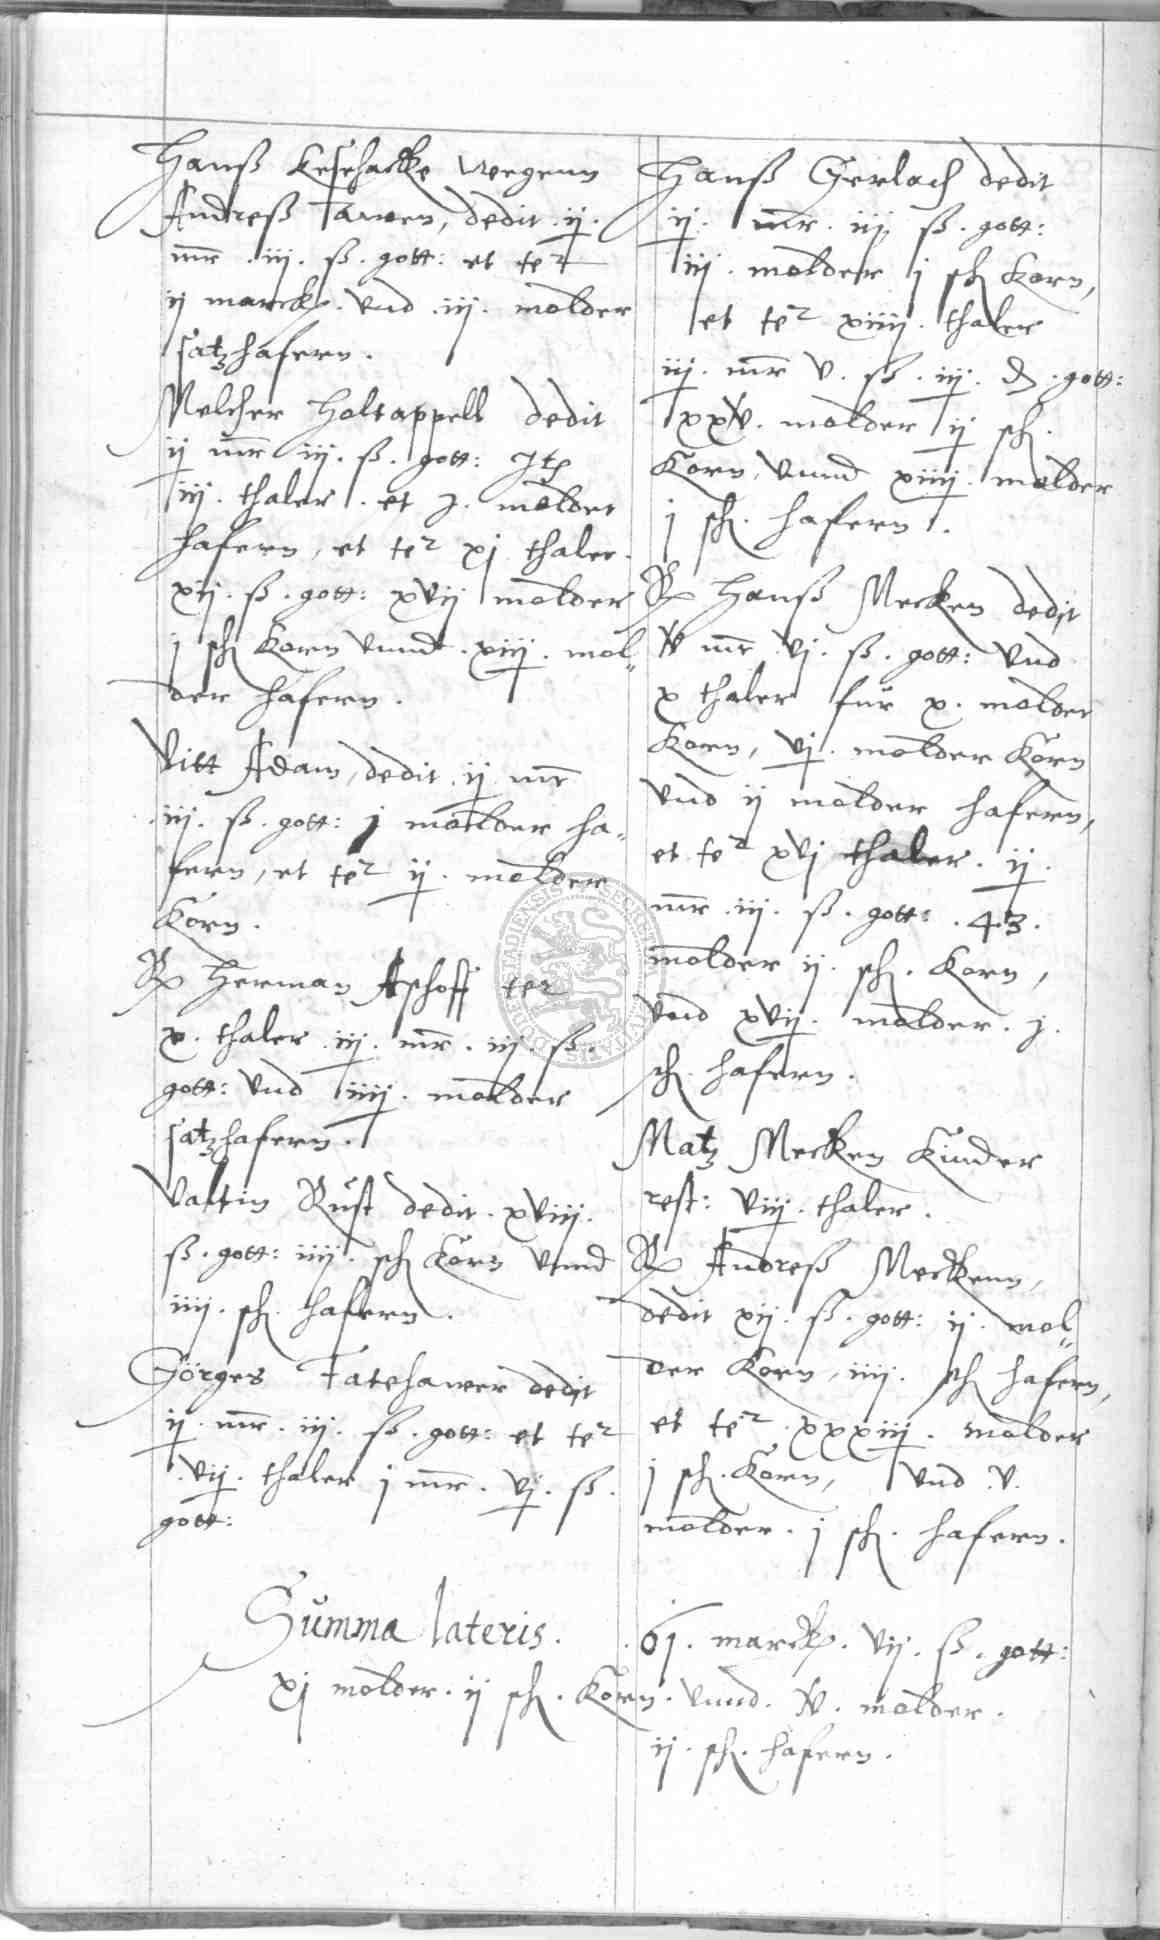 Hanß Kesehacke wegenn
Andreß Tawen, dedit .ij.
mr .iij. ß. gott: et te2
ij marck. vnd .iij. molder
satzhafern.
Melcher Holtappell dedit
ij mr iij. ß. gott: Jt
iij. thaler. et j. molder
hafern, et te2 xj thaler.
xij. ß. gott: xvij molder
j sch Korn vnnd .xiiij. mol„
der hafern.
Vitt Adam, dedit .ij mr
.iij. ß. gott: j molder ha„
fern, et te2 ij. molder
Korn.
Herman Aphoff te2
x. thaler .iij. mr. iij. ß.
gott: vnd iiij. molder
satzhafern.
Valtin Rust dedit. xviij.
ß. gott: iiij. sch Korn vnnd
iiij. sch. hafern.
Görges Fatehawer dedit
ij. mr. iij. ß. gott: et te2
.vij. thaler j mr. vj. ß.
gott:
Hanß Gerlach dedit
ij. mr. iij ß. gott:
iij. molder j sch Korn,
et te2 xiiij. thaler
iij. mr v. ß. iij. d. gott:
xxv. molder ij sch.
Korn, vnnd xiiij. molder
j sch. hafern.
Hanß Mecken dedit
iv mr .vj. ß. gott: vnd
x thaler für x. molder
Korn, vj. molder Korn
vnd ij molder hafern,
et te2 xvj thaler. ij.
mr .iij. ß. gott: .43.
molder ij. sch. Korn,
vnd xvij. molder. j.
sch. hafern.
Matz Mecken Kinder
rest: viij. thaler.
Andreß Meckenn,
dedit xij. ß. gott: ij. mol„
der Korn, iiij. sch hafern,
et te2 .xxxiij. molder
j sch. Korn, vnd .v.
molder. j sch. hafern.
Summa lateris. .61. marck. vij. ß. gott:
xj molder. ij sch. Korn. vnnd. iv. molder.
ij. sch. hafern.